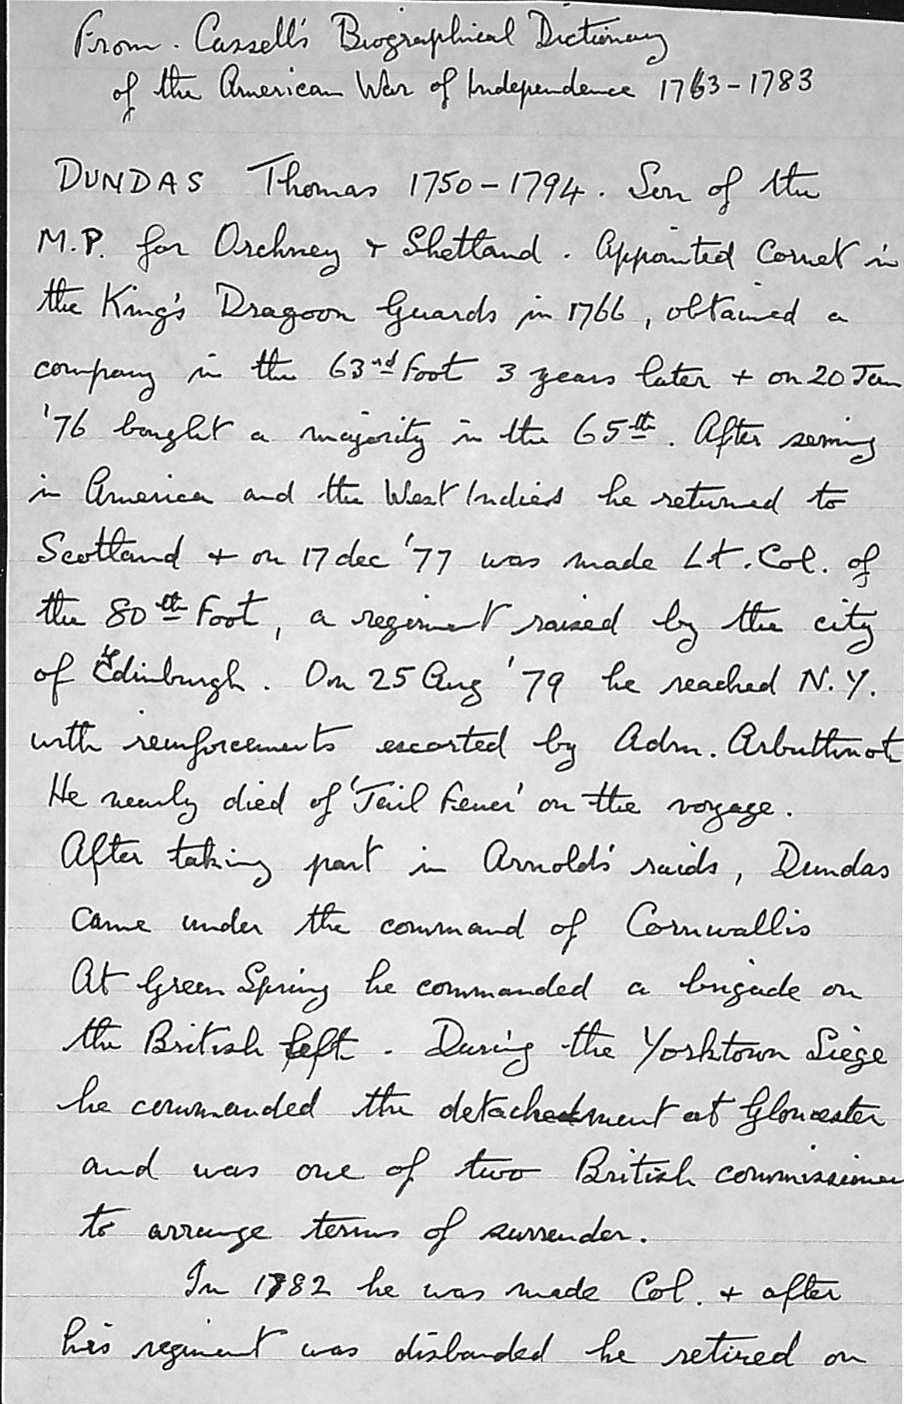 From. Cassell's Biographical Dictionary
of the American War of Independence 1763-1783
DUNDAS Thomas 1750-1794. Son of the
M.P. for Orchney & Shetland. Appointed Cornet in
the King's Dragoon Guards in 1766, obtained a
company in the 63rd Foot 3 years later + on 20 Jan
'76 bought a majority in the 65th. After serving
in America and the West Indies he returned to
Scotland + on 17 dec '77 was made Lt. Col. of
the 80th Foot, a regiment raised by the city
of Edinburgh. On 25 Aug '79 he reached N.Y.
with reinforcements escorted by Adm. Arbuthnot
He nearly died of 'Jail Fever' on the voyage.
After taking part in Arnold's raids, Dundas
came under the command of Cornwallis
At Green Spring he commanded a brigade on
the British left. During the Yorktown Siege
he commanded the detachment at Gloucester
and was one of two British commissioner
to arrange terms of surrender.
In 1782 he was made Col. + after
his regiment was disbanded he retired on